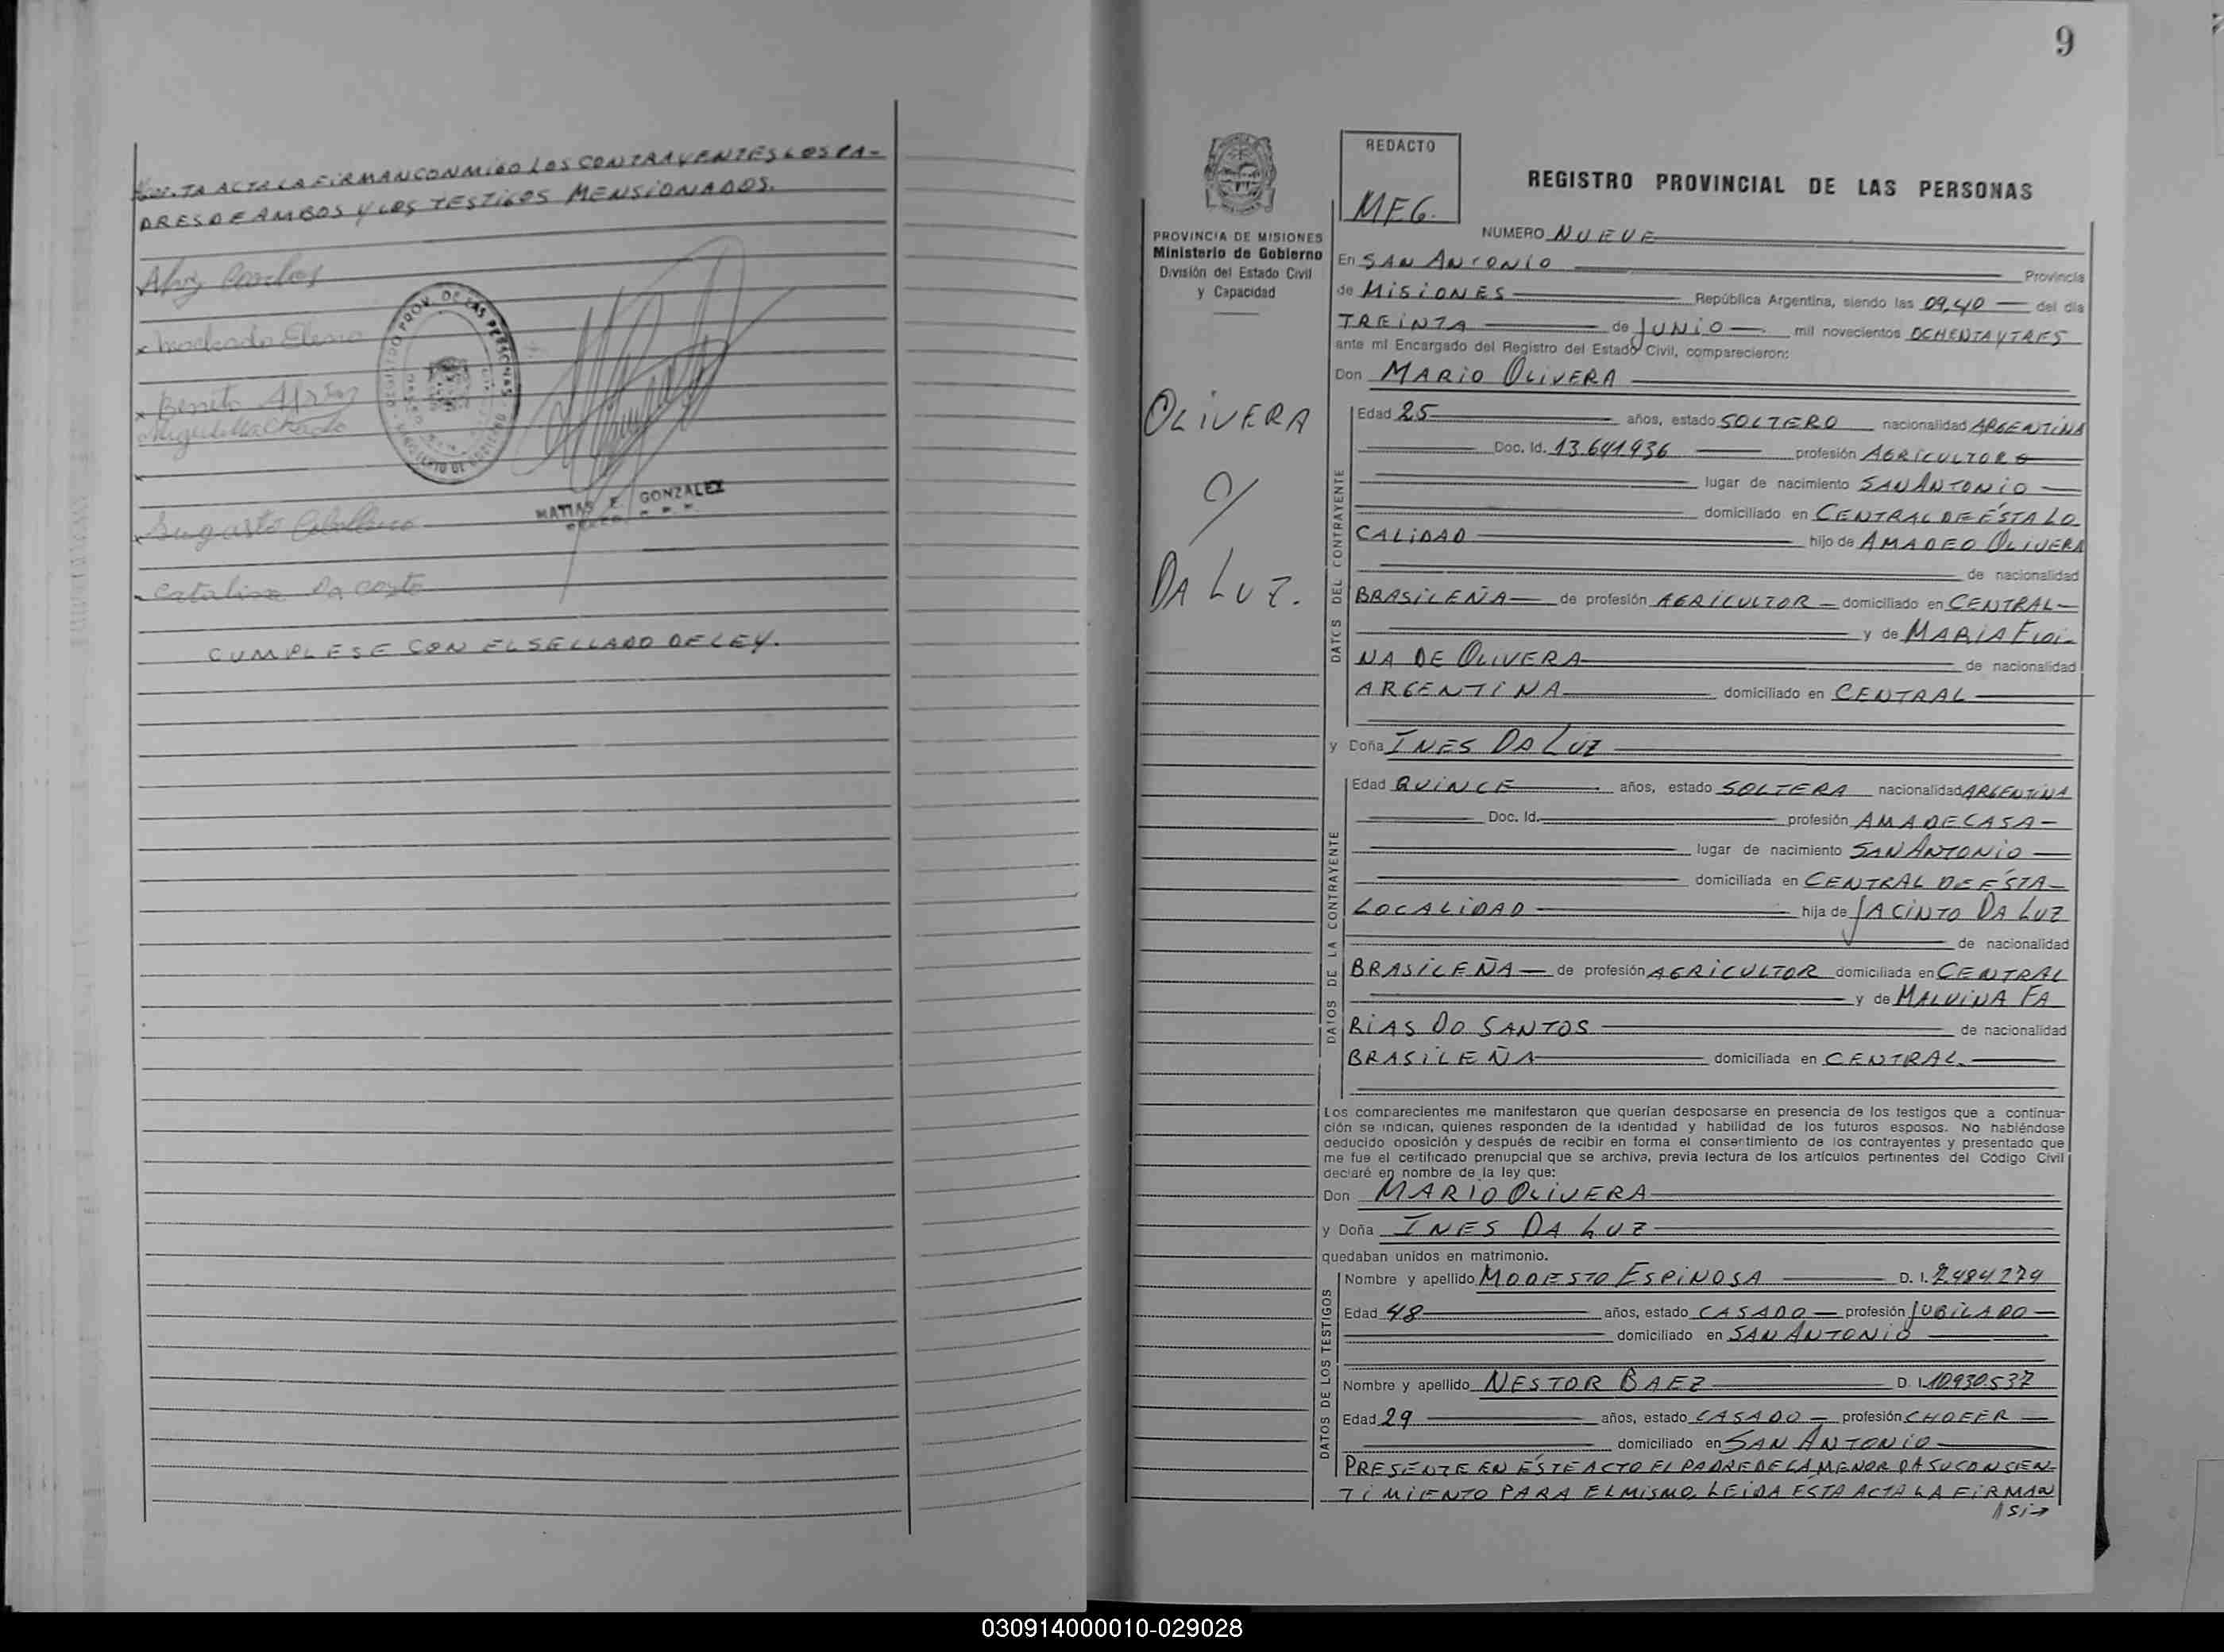 TA ACTA LA FIRMAN CONMIGO LOS CONTRAYENTES LOS PA-
DRES DE AMBOS Y LOS TESTIGOS MENSIONADOS.
Carlos
Machado Elena
Benito
Miguel Machado
REGISTRO PROV. DE LAS PERSONAS
MATIAS F. GONZALEZ
Caballero
Catalina Da Costa
CUMPLESE CON EL SELLADO DE LEY.
9
REDACTO
MFG.
REGISTRO PROVINCIAL DE LAS PERSONAS
PROVINCIA DE MISIONES
Ministerio de Gobierno
División del Estado Civil
y Capacidad
OLIVERA
c/
DA LUZ.
NUMERO NUEVE
En SAN ANTONIO Provincia
de MISIONES República Argentina, siendo las 09,40 del día
TREINTA de JUNIO mil novecientos OCHENTA Y TRES
ante mi Encargado del Registro del Estado Civil, comparecieron:
Don MARIO OLIVERA
DATOS DEL CONTRAYENTE
Edad 25 años, estado SOLTERO nacionalidad ARGENTINA
Doc. Id. 13.641.936 profesión AGRICULTOR
lugar de nacimiento SAN ANTONIO
domiciliado en CENTRAL DE ÉSTA LO
CALIDAD hijo de AMADEO OLIVERA
de nacionalidad
BRASILEÑA de profesión AGRICULTOR domiciliado en CENTRAL
y de MARIA
NA DE OLIVERA de nacionalidad
ARGENTINA domiciliado en CENTRAL
y Doña INES DA LUZ
DATOS DE LA CONTRAYENTE
Edad QUINCE años, estado SOLTERA nacionalidad ARGENTINA
Doc. Id. profesión AMA DE CASA
lugar de nacimiento SAN ANTONIO
domiciliada en CENTRAL DE ÉSTA
LOCALIDAD hija de JACINTO DA LUZ
de nacionalidad
BRASILEÑA de profesión AGRICULTOR domiciliada en CENTRAL
y de MALVINA FA
RIAS DO SANTOS de nacionalidad
BRASILEÑA domiciliada en CENTRAL.
Los comparecientes me manifestaron que querían desposarse en presencia de los testigos que a continua-
ción se indican, quienes responden de la identidad y habilidad de los futuros esposos. No habiéndose
deducido oposición y después de recibir en forma el consertimiento de los contrayentes y presentado que
me fue el certificado prenupcial que se archiva, previa lectura de los artículos pertinentes del Código Civil
declaré en nombre de la ley que:
Don MARIO OLIVERA
y Doña INES DA LUZ
quedaban unidos en matrimonio.
DATOS DE LOS TESTIGOS
Nombre y apellido MODESTO ESPINOSA D. I. 7484274
Edad 48 años, estado CASADO profesión JUBILADO
domiciliado en SAN ANTONIO
Nombre y apellido NESTOR BAEZ D. I. 10930.537
Edad 29 años, estado CASADO profesión CHOFER
domiciliado en SAN ANTONIO
PRESENTE EN ÉSTE ACTO EL PADRE DE LA MENOR DA SU CONSIEN-
TIMIENTO PARA EL MISMO, LEIDA ESTA ACTA LA FIRMAN
030914000010-029028